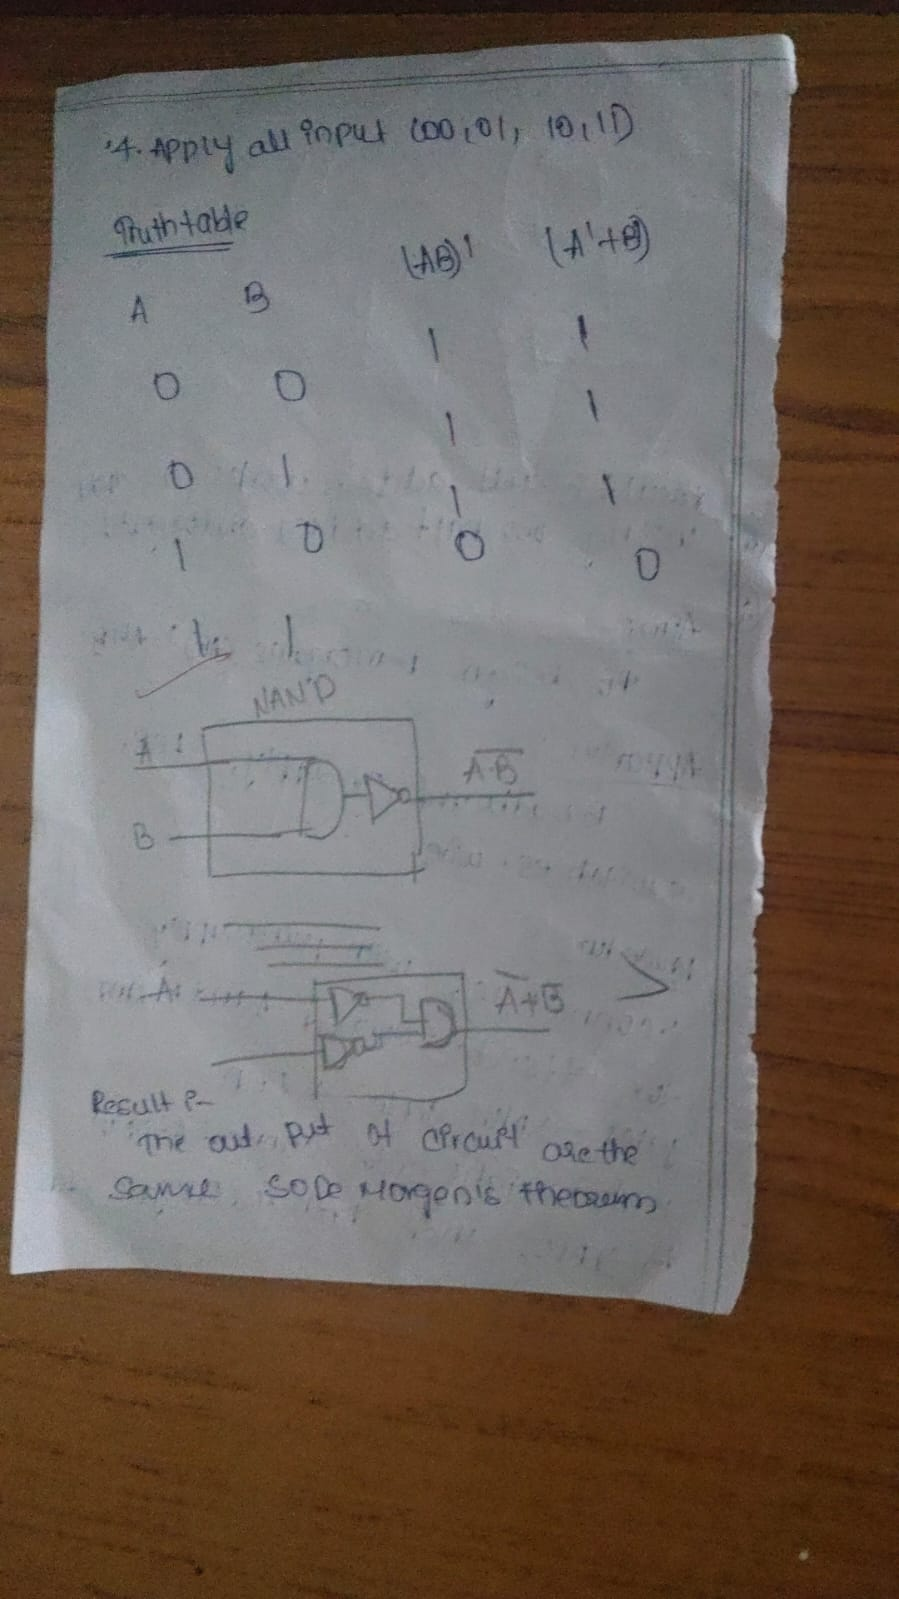 4. Apply all input (00,01, 10,11)
Truth table
A B (AB)' (A'+B')
0 0 1 1
0 1 1 1
1 0 1 1
1 1 0 0
NAND
A
B
A·B
A
A+B
Result :-
The out put of circuit are the
same so De Morgen's theorem